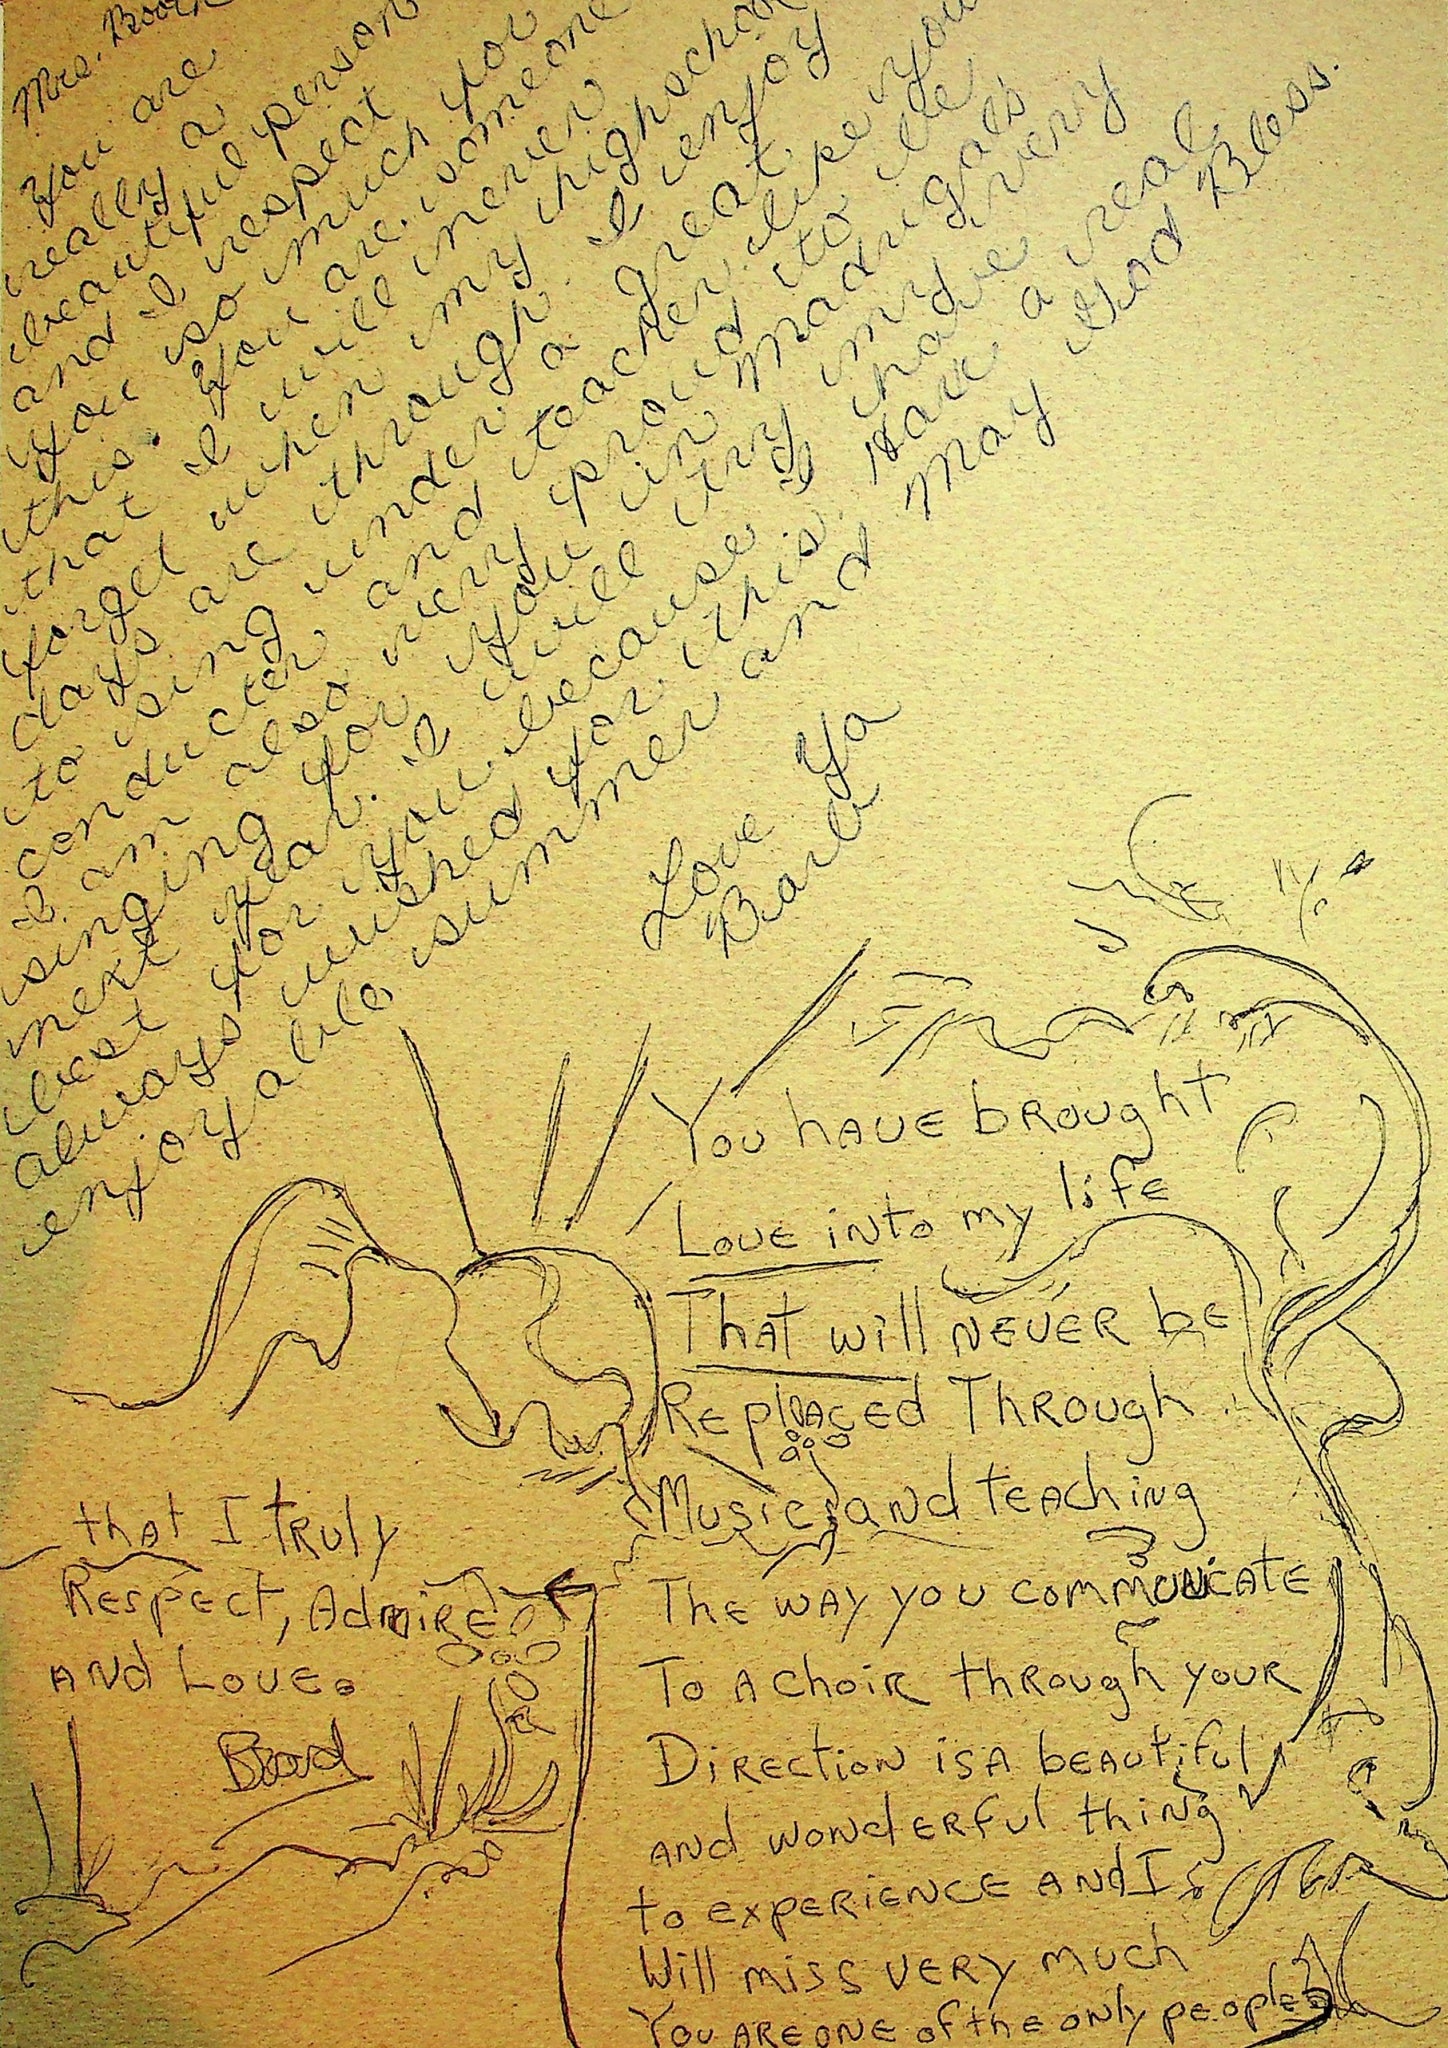 Mrs. Booth
You are
really a
beautiful person
and I respect
you so much for
this. You are someone
that I will never
forget when my highschool
days are through. I enjoy
to sing under a great
conducter and teacher like you
I am also very proud to be
singing for you in Madrigals
next year. I will try my very
best for you because I have
always wished for this. Have a real
enjoyable summer and may God Bless.
Love Ya
Barb
You have brought
Love into my life
That will never be
Replaced Through
Music and teaching
The way you communicate
To a choir through your
Direction is a beautiful
and wonderful thing
to experience and I
Will miss very much
You are one of the only people
that I truly
Respect, Admire
and Love.
Brad